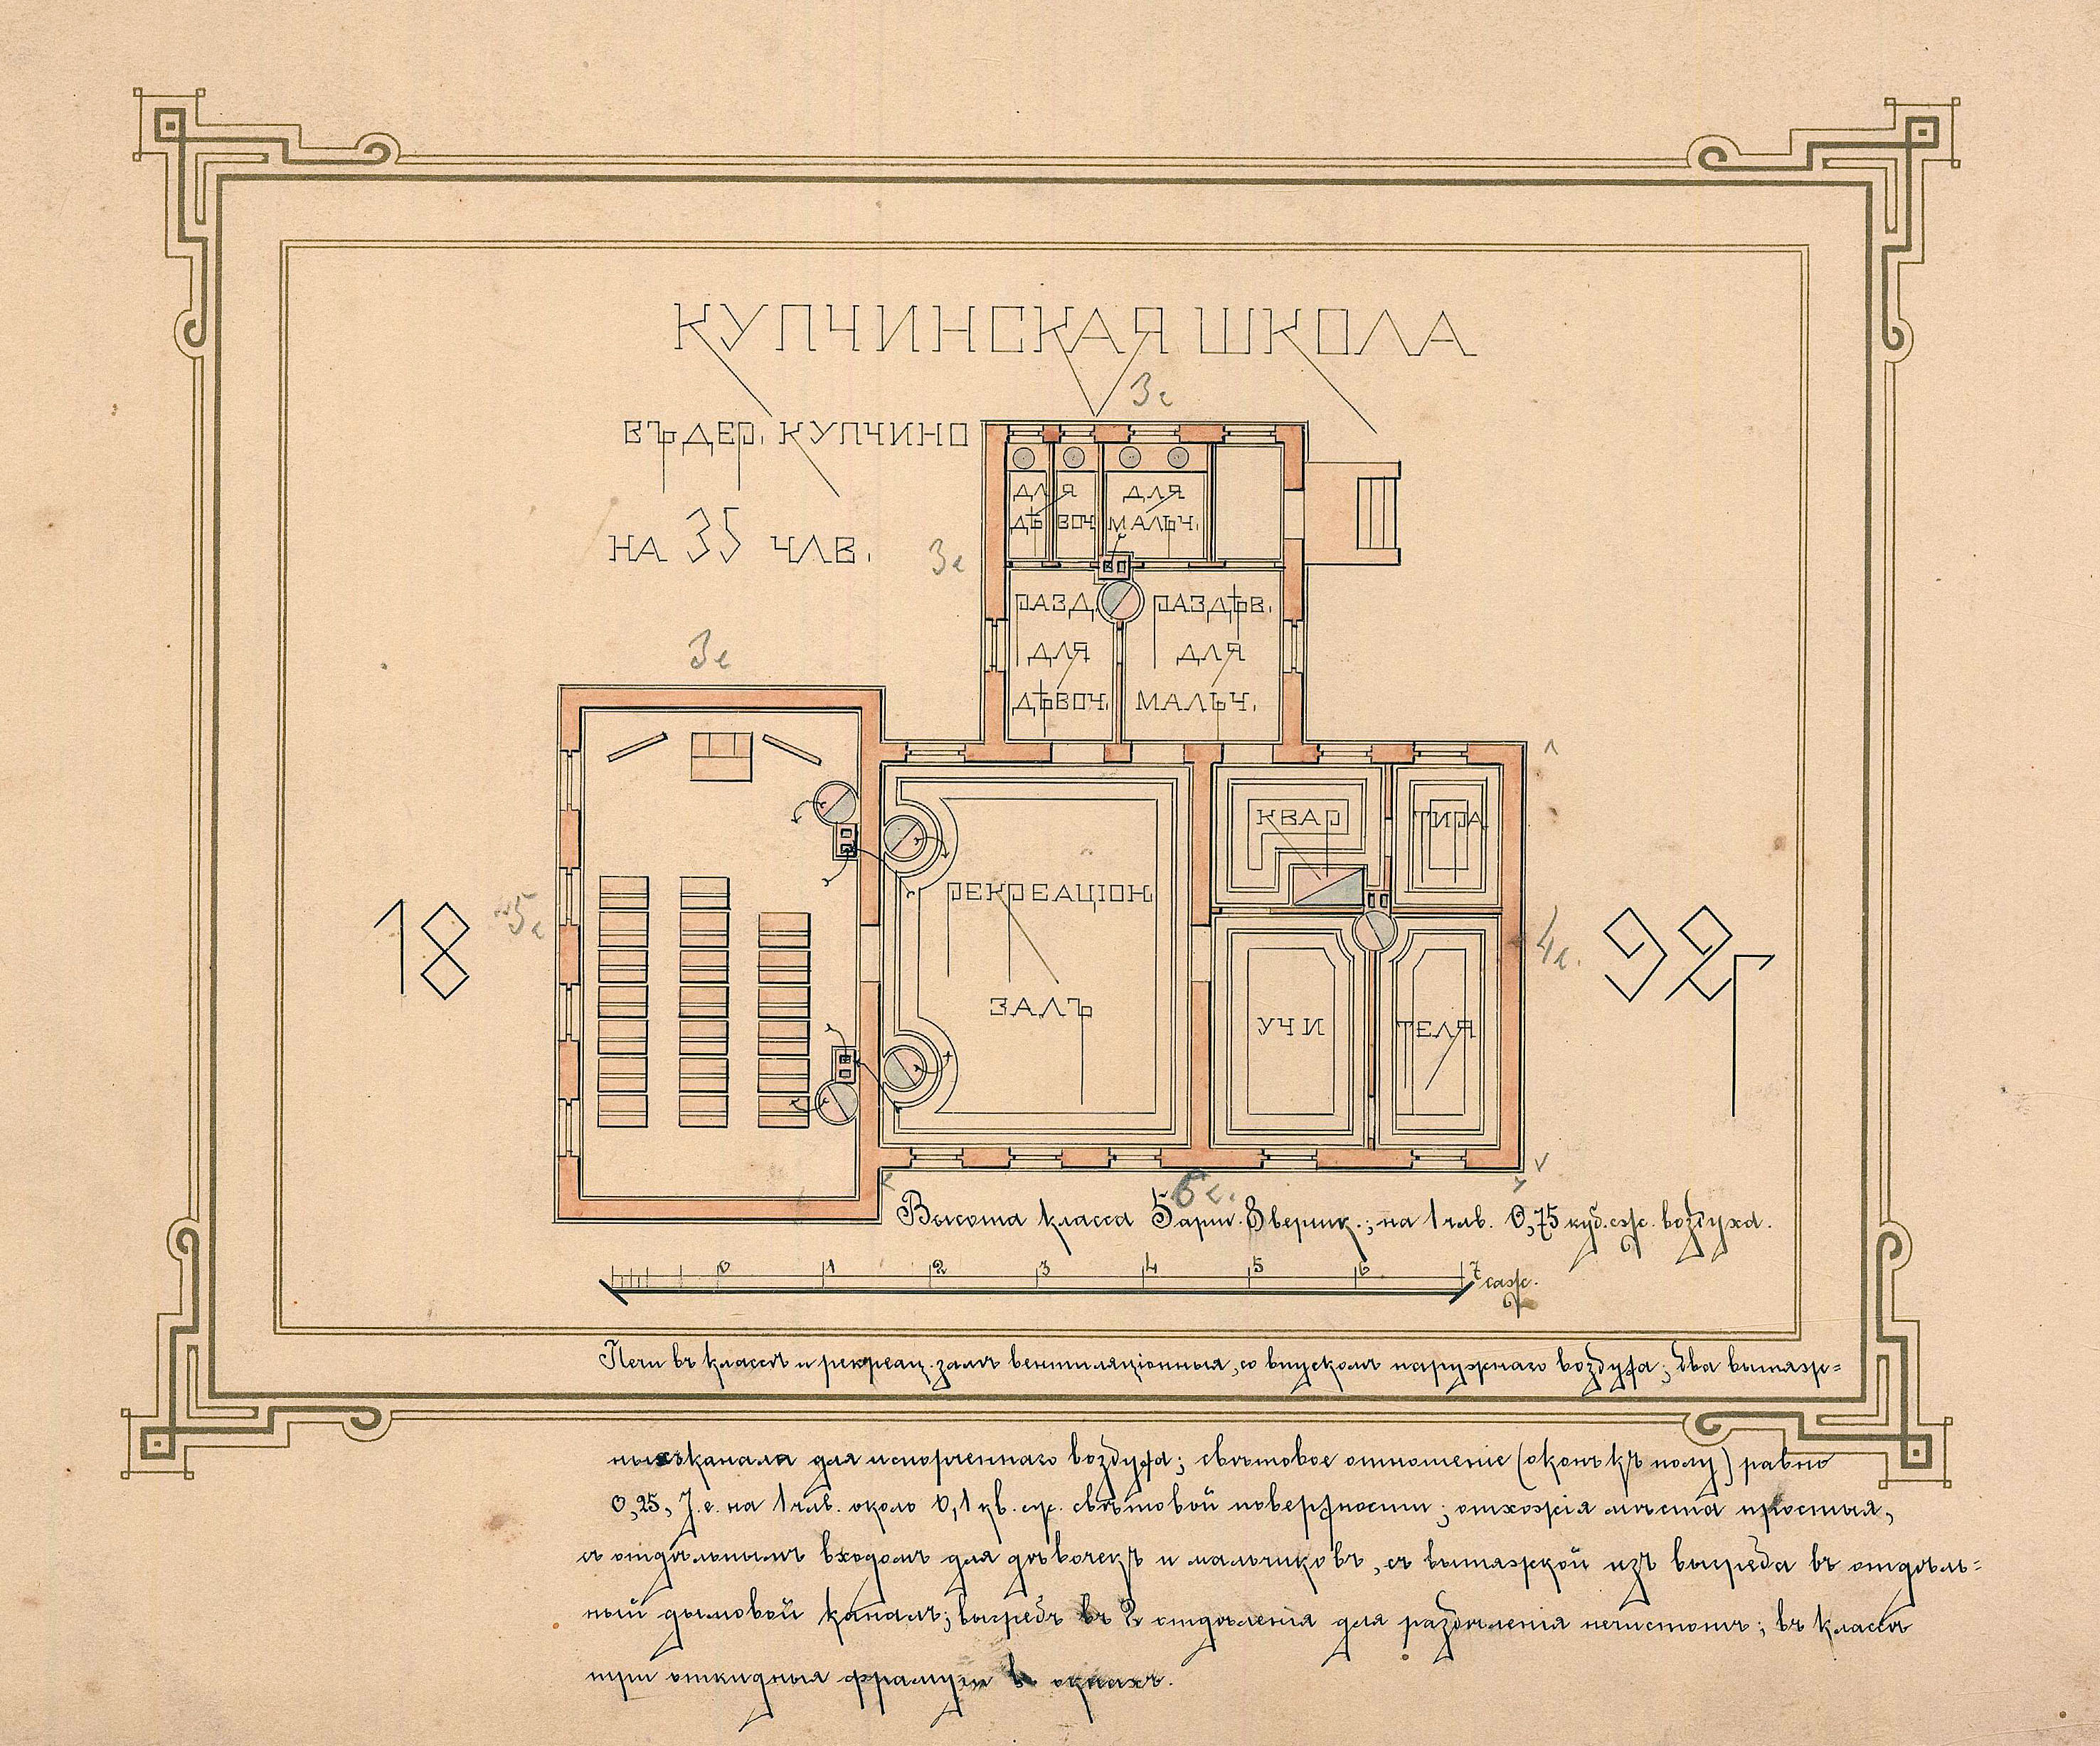 КУПЧИНСКАЯ ШКОЛА
ВЪ ДЕР. КУПЧИНО
НА 35 ЧЛВ.
3с
3с
3с
ДЛЯ
ДѢВОЧ.
ДЛЯ
МАЛЬЧ.
РАЗД.
ДЛЯ
ДѢВОЧ.
РАЗДѢВ.
ДЛЯ
МАЛЬЧ.
КВАРТИРА
РЕКРЕАЦІОН.
ЗАЛЪ
УЧИТЕЛЯ
18 92 г
5с
4с.
6с.
Высота класса 5 арш. 8 вершк.; на 1 члв. 0,75 куб. сж. воздуха.
0 1 2 3 4 5 6 7 саж.
Печи въ классѣ и рекреац. залѣ вентиляціонныя, со впускомъ наружнаго воздуха; два вытяж=
ныхъ канала для испорченнаго воздуха; свѣтовое отношеніе (оконъ къ полу) равно
0,25, т.е. на 1 члв. около 0,1 кв. сж. свѣтовой поверхности; отхожія мѣста простыя,
съ отдѣльнымъ входомъ для дѣвочекъ и мальчиковъ, съ вытяжкой изъ выгреба въ отдѣль=
ный дымовой каналъ; выгребъ въ 2 отдѣленія для раздѣленія нечистотъ; въ классѣ
три откидныя фрамуги въ окнахъ.